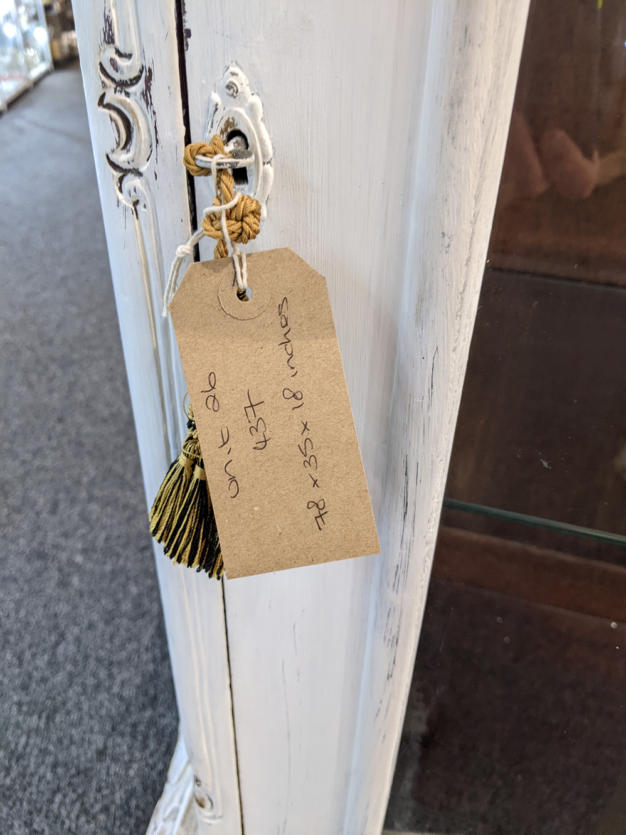 unit 26
437
78 x 35 x 18 inches